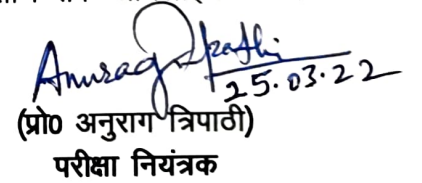 Anurag Tripathi
25.03.22
(प्रो0 अनुराग त्रिपाठी)
परीक्षा नियंत्रक